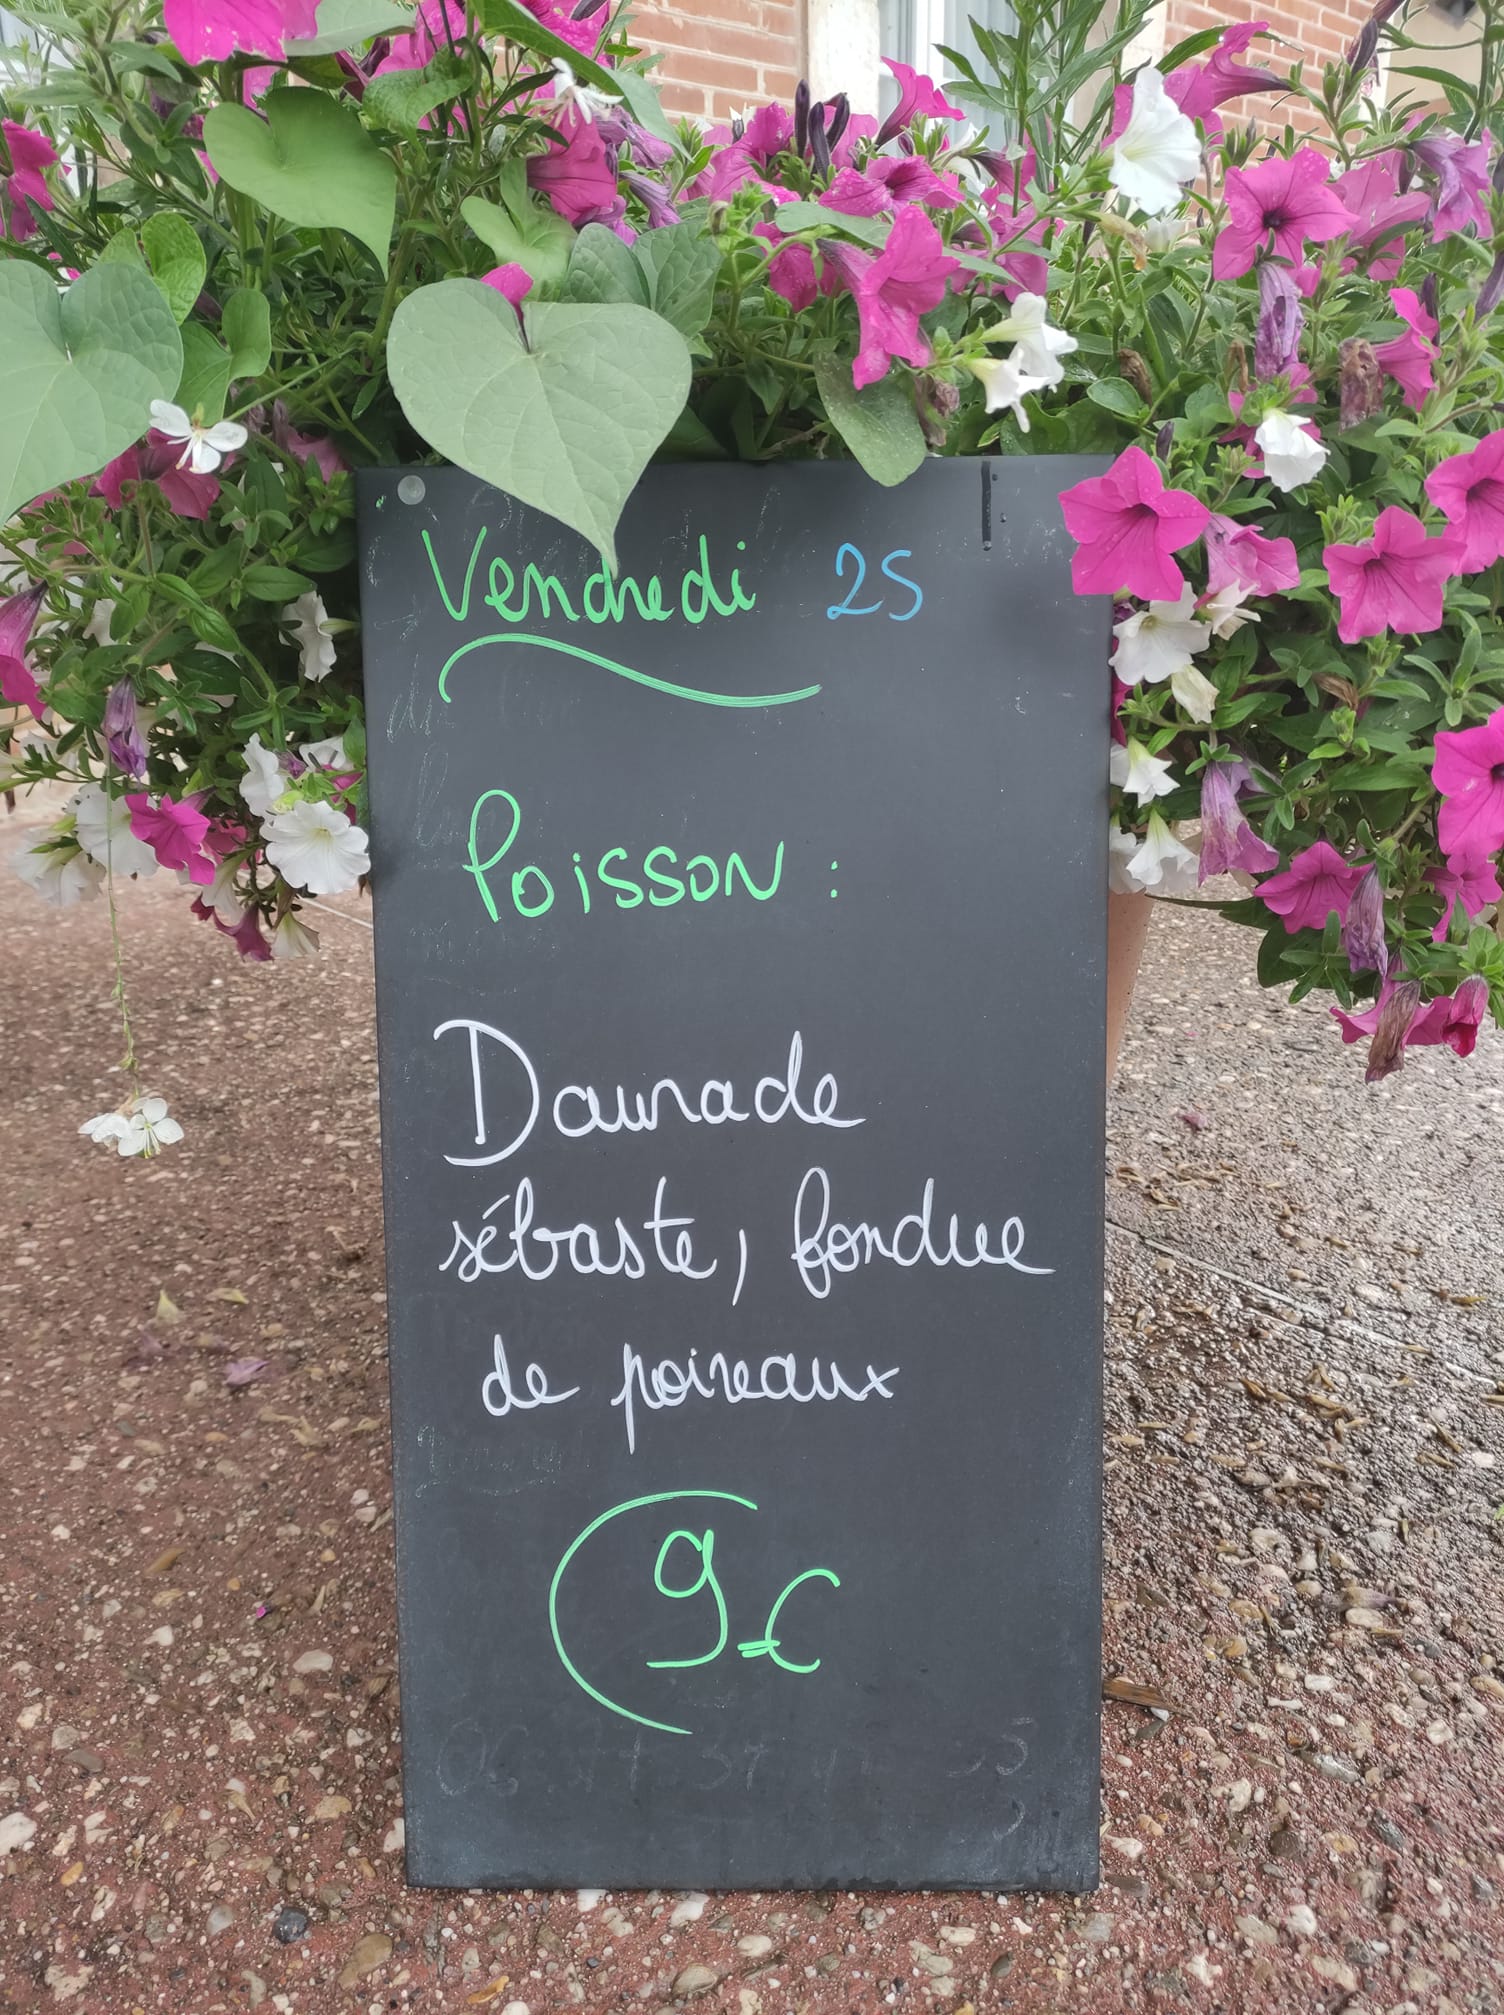 Vendredi 25
Poisson :
Daurade
sébaste, fondue
de poireaux
9€